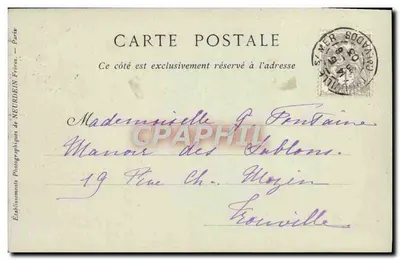 CARTE POSTALE
Ce côté est exclusivement réservé à l'adresse
Mademoiselle G Fontaine
Manoir des Sablons
19 Rue Ch. Mozin
Trouville
Etablissements Photographiques de NEURDEIN Frères. — Paris
S/MER
CALVADOS
CPAPHIL